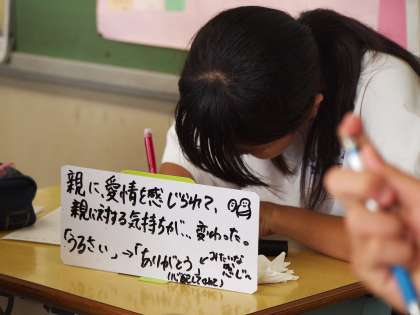 親に、愛情を感じられて、
親に対する気持ちが…変わった。
「うるさい」→「ありがとう」←みたいな
感じ。
(心配してくれて)